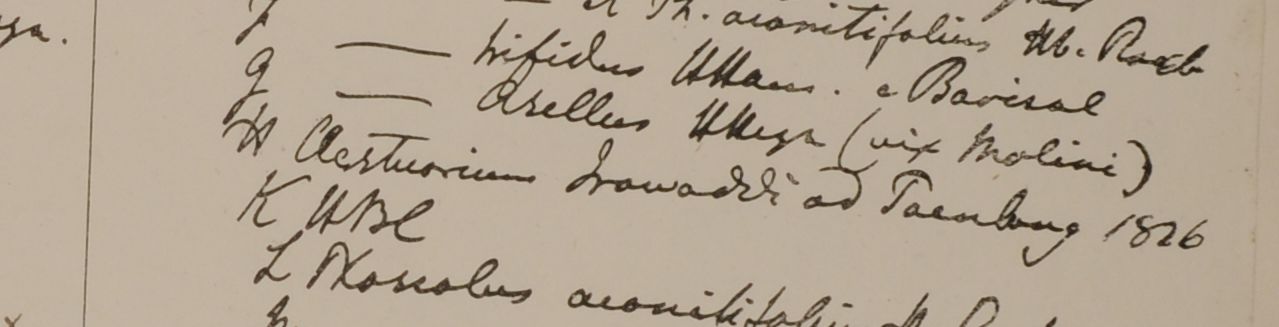 F — Ph. aconitifolius Hb. Roxb
G — trifidus HHam. e Barisal
— Asellus HHeyn (vix Molini)
H Aestuarium Irawaddi ad Taenbung 1826
K HBC
L Phaseolus aconitifoli